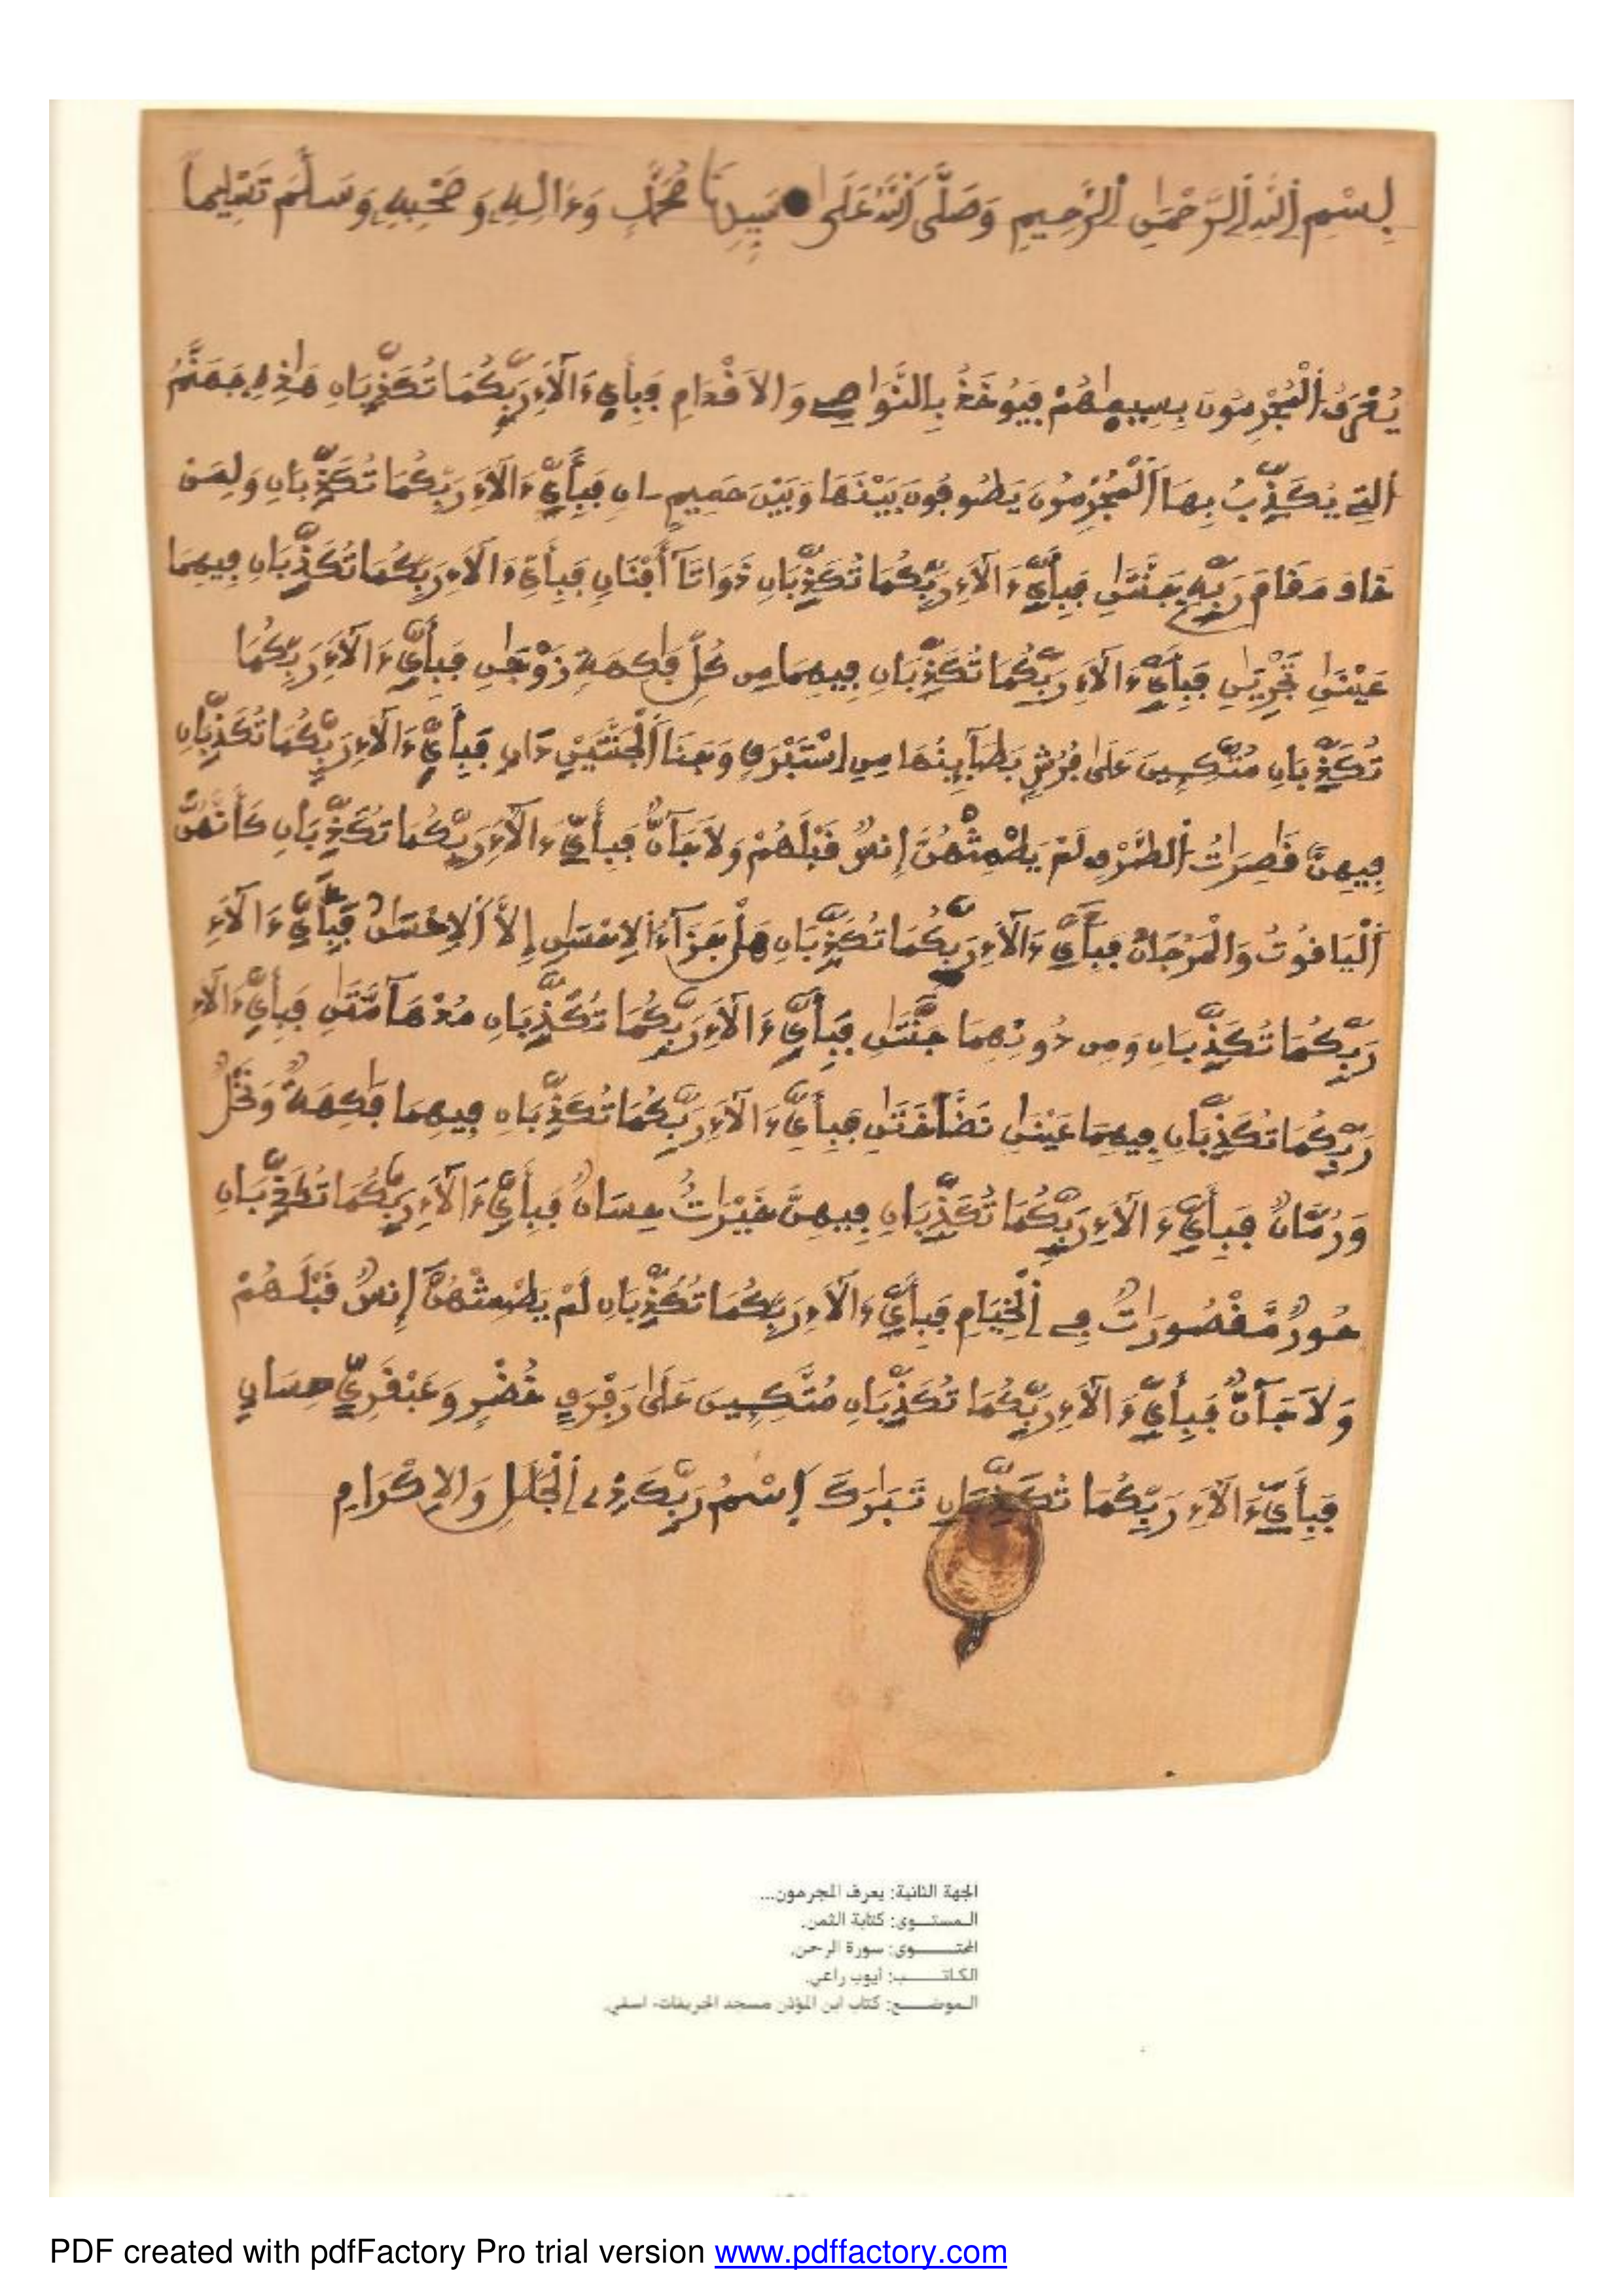 بِسْمِ اِللَّهِ اِلرَّحْمَٰنِ اِلرَّحِيمِ وَصَلَّى اَللَّهُ عَلَىٰ سَيِّدِنَا مُحَمَّدٍ وَءَالِهِ وَصَحْبِهِ وَسَلَّمَ تَسْلِيماً
يُعْرَفُ اُلْمُجْرِمُونَ بِسِيمٰهُمْ فَيُوخَذُ بِالنَّوَٰصِے وَالاَقْدَامِ فَبِأَيِّ ءَالَآءِ رَبِّكُمَا تُكَذِّبَانِ هَٰذِهِ جَهَنَّمُ
اُلتِے يُكَذِّبُ بِهَا اَلْمُجْرِمُونَ يَطُوفُونَ بَيْنَهَا وَبَيْنَ حَمِيمٍ ـانٍ فَبِأَيِّ ءَالَآءِ رَبِّكُمَا تُكَذِّبَانِ وَلِمَنْ
خَافَ مَقَامَ رَبِّهِ جَنَّتَٰنِ فَبِأَيِّ ءَالَآءِ رَبِّكُمَا تُكَذِّبَانِ ذَوَاتَآ أَفْنَانٍ فَبِأَيِّ ءَالَآءِ رَبِّكُمَا تُكَذِّبَانِ فِيهِمَا
عَيْنَٰنِ تَجْرِيَٰنِ فَبِأَيِّ ءَالَآءِ رَبِّكُمَا تُكَذِّبَانِ فِيهِمَا مِن كُلِّ فَٰكِهَةٍ زَوْجَٰنِ فَبِأَيِّ ءَالَآءِ رَبِّكُمَا
تُكَذِّبَانِ مُتَّكِـِٕينَ عَلَىٰ فُرُشٍ بَطَآئِنُهَا مِنِ اِسْتَبْرَقٍ وَجَنَا اَلْجَنَّتَيْنِ دَانٍ فَبِأَيِّ ءَالَآءِ رَبِّكُمَا تُكَذِّبَانِ
فِيهِنَّ قَٰصِرَٰتُ اُلطَّرْفِ لَمْ يَطْمِثْهُنَّ إِنسٌ قَبْلَهُمْ وَلَا جَآنٌّ فَبِأَيِّ ءَالَآءِ رَبِّكُمَا تُكَذِّبَانِ كَأَنَّهُنَّ
اَلْيَاقُوتُ وَالْمَرْجَانُ فَبِأَيِّ ءَالَآءِ رَبِّكُمَا تُكَذِّبَانِ هَلْ جَزَآءُ اُلِاحْسَٰنِ إِلَّا اَلِاحْسَٰنُ فَبِأَيِّ ءَالَآءِ
رَبِّكُمَا تُكَذِّبَانِ وَمِن دُونِهِمَا جَنَّتَٰنِ فَبِأَيِّ ءَالَآءِ رَبِّكُمَا تُكَذِّبَانِ مُدْهَآمَّتَٰنِ فَبِأَيِّ ءَالَآءِ
رَبِّكُمَا تُكَذِّبَانِ فِيهِمَا عَيْنَٰنِ نَضَّاخَتَٰنِ فَبِأَيِّ ءَالَآءِ رَبِّكُمَا تُكَذِّبَانِ فِيهِمَا فَٰكِهَةٌ وَنَخْلٌ
وَرُمَّانٌ فَبِأَيِّ ءَالَآءِ رَبِّكُمَا تُكَذِّبَانِ فِيهِنَّ خَيْرَٰتٌ حِسَانٌ فَبِأَيِّ ءَالَآءِ رَبِّكُمَا تُكَذِّبَانِ
حُورٌ مَّقْصُورَٰتٌ فِے اِلْخِيَامِ فَبِأَيِّ ءَالَآءِ رَبِّكُمَا تُكَذِّبَانِ لَمْ يَطْمِثْهُنَّ إِنسٌ قَبْلَهُمْ
وَلَا جَآنٌّ فَبِأَيِّ ءَالَآءِ رَبِّكُمَا تُكَذِّبَانِ مُتَّكِـِٕينَ عَلَىٰ رَفْرَفٍ خُضْرٍ وَعَبْقَرِيٍّ حِسَانٍ
فَبِأَيِّ ءَالَآءِ رَبِّكُمَا تُكَذِّبَانِ تَبَٰرَكَ اَسْمُ رَبِّكَ ذِے اِلْجَلَٰلِ وَالِاكْرَامِ
الجهة الثانية: يعرف المجرمون...
المستوى: كتابة الثمن.
المحتوى: سورة الرحمن.
الكاتب: أيوب راعي.
الموضع: كتاب ابن المؤذن مسجد الخريفات- اسفي.
PDF created with pdfFactory Pro trial version www.pdffactory.com